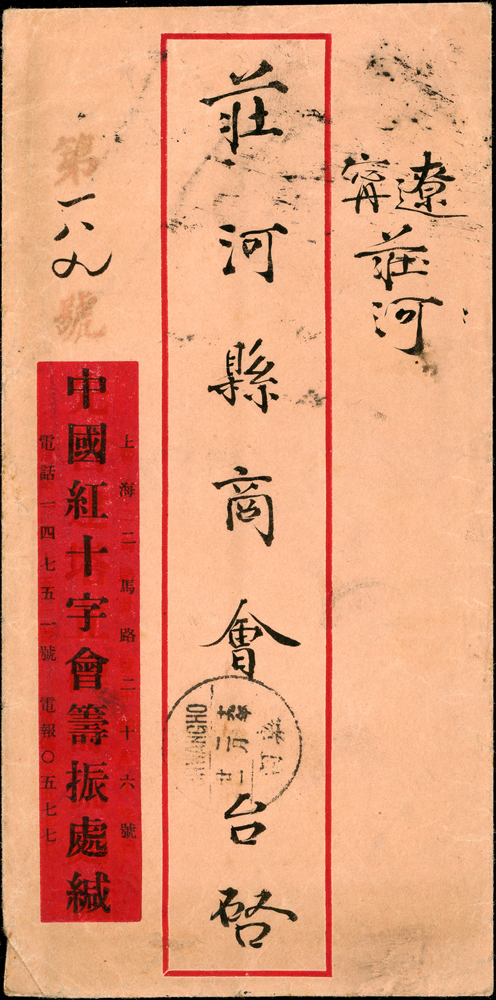 遼寧
莊河
莊河縣商會台啓
第一八九號
上海二馬路二十六號
中國紅十字會籌振處緘
電話一四七五一號 電報〇五七七
莊河
廿二